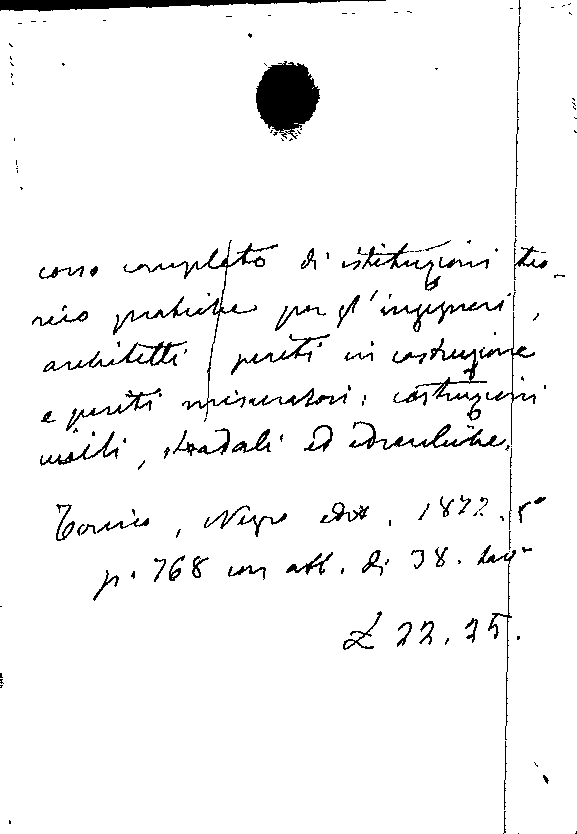 corso completo di istituzioni teo-
rico pratiche per gl'ingegneri,
architetti periti in costruzione
e periti misuratori: costruzioni
civili, stradali ed idrauliche.
Torino, Negro edit. 1872. 8°
p. 768 con atl. di 38. tav.
L 22.25.